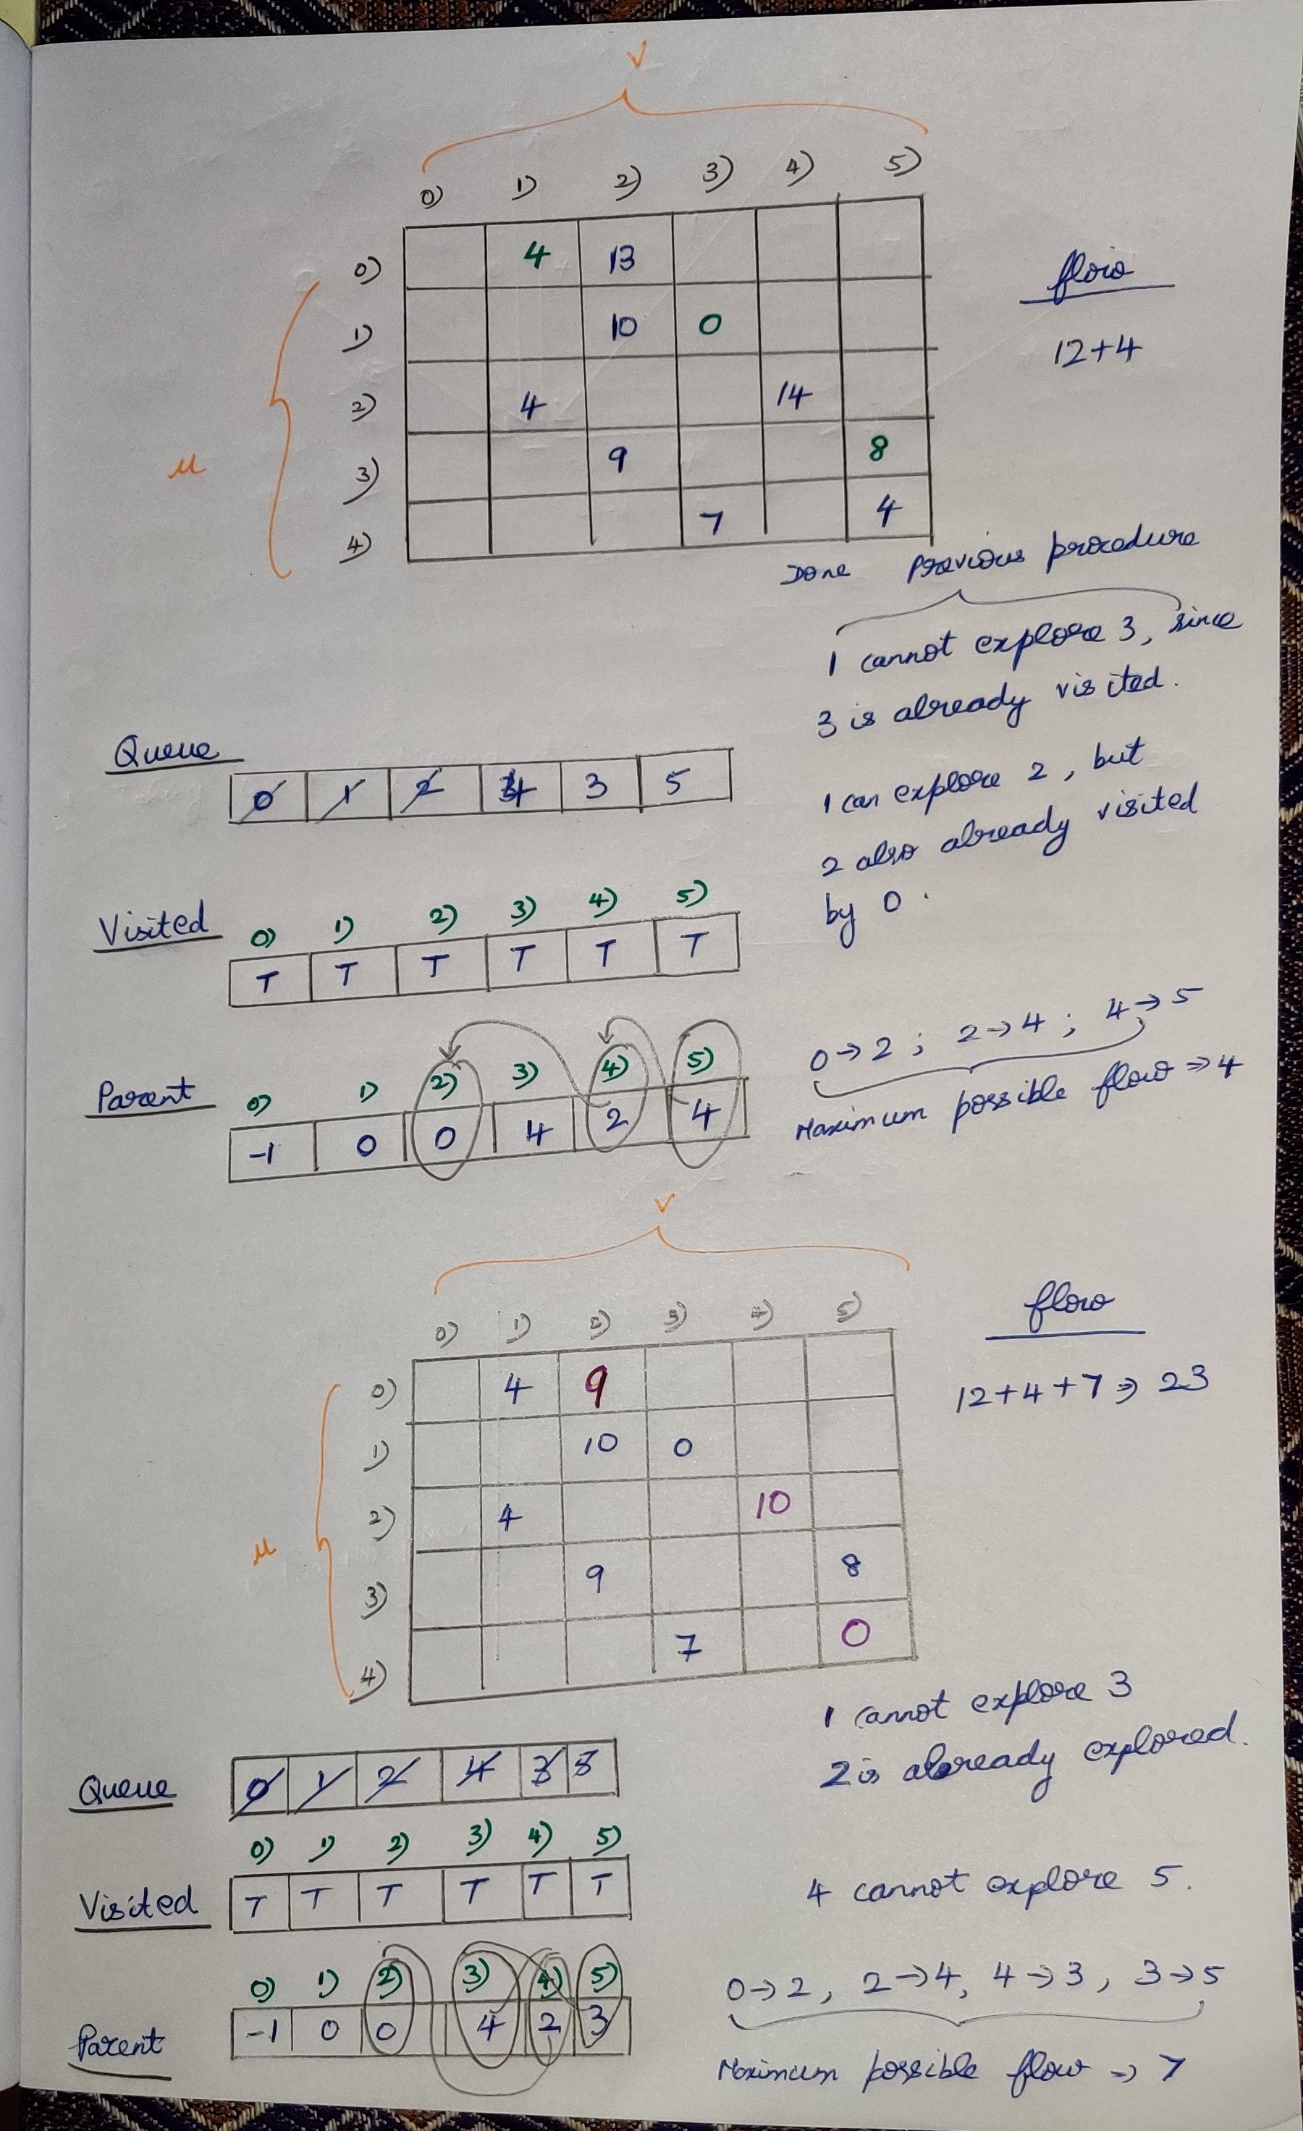 V
0) 1) 2) 3) 4) 5)
0) 4 13
1) 10 0
2) 4 14
3) 9 8
4) 7 4
u
flow
12+4
Done Previous procedure
1 cannot explore 3, since
3 is already visited.
1 can explore 2, but
2 also already visited
by 0.
Queue
0 1 2 4 3 5
Visited
0) 1) 2) 3) 4) 5)
T T T T T T
Parent
0) 1) 2) 3) 4) 5)
-1 0 0 4 2 4
0→2 ; 2→4 ; 4→5
Maximum possible flow ⇒ 4
V
0) 1) 2) 3) 4) 5)
0) 4 9
1) 10 0
2) 4 10
3) 9 8
4) 7 0
u
flow
12+4+7 ⇒ 23
1 cannot explore 3
2 is already explored.
Queue
0 1 2 4 3 5
4 cannot explore 5.
Visited
0) 1) 2) 3) 4) 5)
T T T T T T
Parent
0) 1) 2) 3) 4) 5)
-1 0 0 4 2 3
0→2, 2→4, 4→3, 3→5
Maximum possible flow ⇒ 7